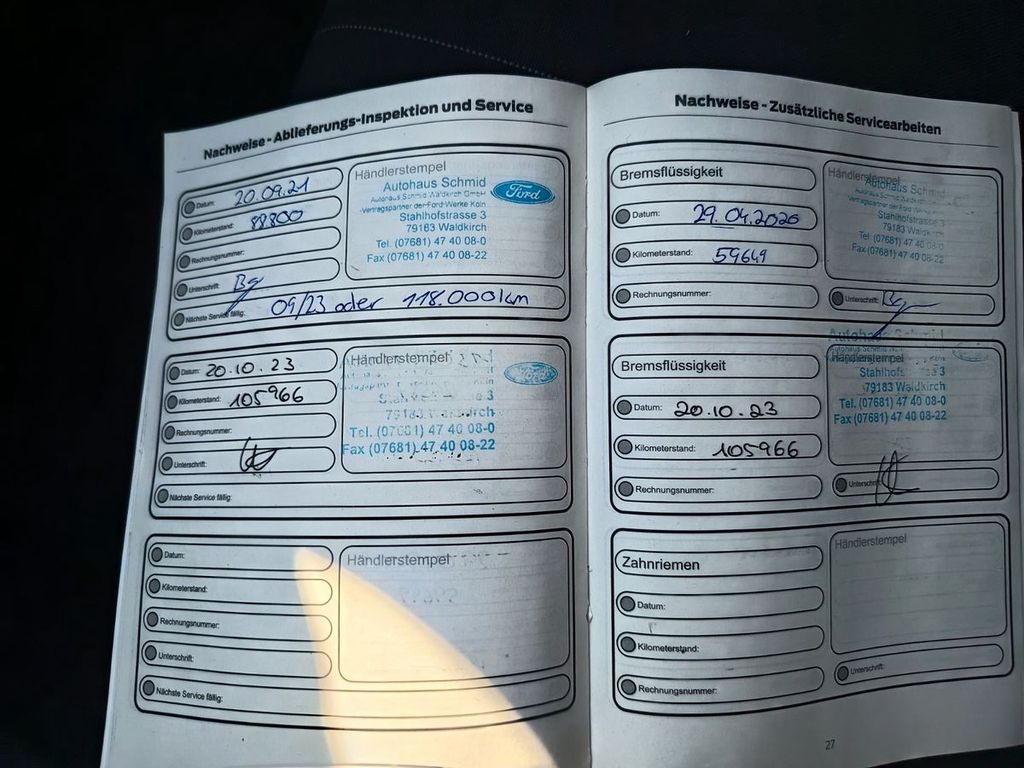 Nachweise - Ablieferungs-Inspektion und Service
Datum: 20.09.21
Kilometerstand: 88800
Rechnungsnummer:
Unterschrift:
Nächste Service fällig: 09/23 oder 118.000km
Händlerstempel
Autohaus Schmid
Autohaus Schmid Waldkirch GmbH
-Vertragspartner der Ford-Werke Köln
Stahlhofstrasse 3
79183 Waldkirch
Tel. (07681) 47 40 08-0
Fax (07681) 47 40 08-22
Ford
Datum: 20.10.23
Kilometerstand: 105966
Rechnungsnummer:
Unterschrift:
Nächste Service fällig:
Händlerstempel
3
79183 Waldkirch
Tel. (07681) 47 40 08-0
Fax (07681) 47 40 08-22
Ford
Datum:
Kilometerstand:
Rechnungsnummer:
Unterschrift:
Nächste Service fällig:
Händlerstempel
Nachweise - Zusätzliche Servicearbeiten
Bremsflüssigkeit
Datum: 29.04.2020
Kilometerstand: 59649
Rechnungsnummer:
Händlerstempel
Autohaus Schmid
Autohaus Schmid Waldkirch GmbH
-Vertragspartner der Ford-Werke Köln
Stahlhofstrasse 3
79183 Waldkirch
Tel. (07681) 47 40 08-0
Fax (07681) 47 40 08-22
Unterschrift:
Bremsflüssigkeit
Datum: 20.10.23
Kilometerstand: 105966
Rechnungsnummer:
Autohaus Schmid
Händlerstempel
79183 Waldkirch
Tel. (07681) 47 40 08-0
Fax (07681) 47 40 08-22
Unterschrift:
Zahnriemen
Datum:
Kilometerstand:
Rechnungsnummer:
Händlerstempel
Unterschrift:
27